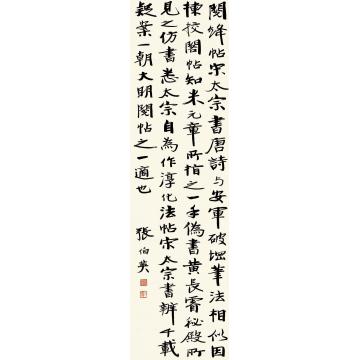 閱絳帖宋太宗書唐詩与安軍破堽筆法相似因
楝校閣帖知米元章所指之一手偽書黃長睿秘殿所
見之仿書悉太宗自為作淳化法帖宋太宗書辨千載
疑業一朝大明閱帖之一適也
張伯英